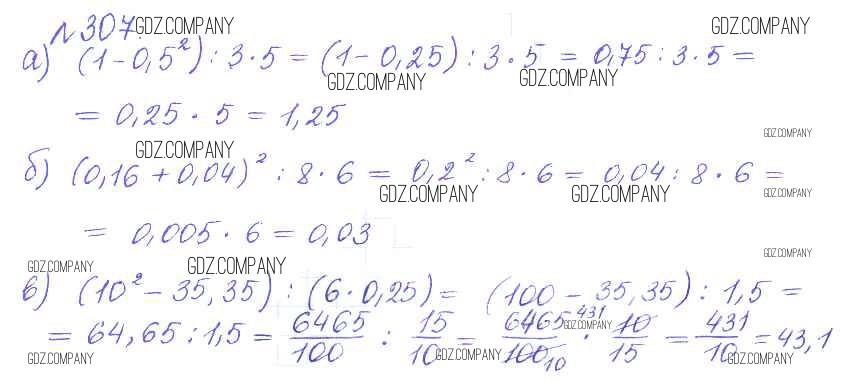 №307. GDZ.COMPANY GDZ.COMPANY
а) (1-0,5²):3·5=(1-0,25):3·5=0,75:3·5=
GDZ.COMPANY GDZ.COMPANY
=0,25·5=1,25
GDZ.COMPANY
GDZ.COMPANY
б) (0,16+0,04)²:8·6=0,2²:8·6=0,04:8·6=
GDZ.COMPANY GDZ.COMPANY GDZ.COMPANY
=0,005·6=0,03
GDZ.COMPANY
GDZ.COMPANY GDZ.COMPANY
в) (10²-35,35):(6·0,25)=(100-35,35):1,5=
=64,65:1,5=6465/100:15/10=6465 431/100 10·10/15=431/10=43,1
GDZ.COMPANY
GDZ.COMPANY GDZ.COMPANY GDZ.COMPANY